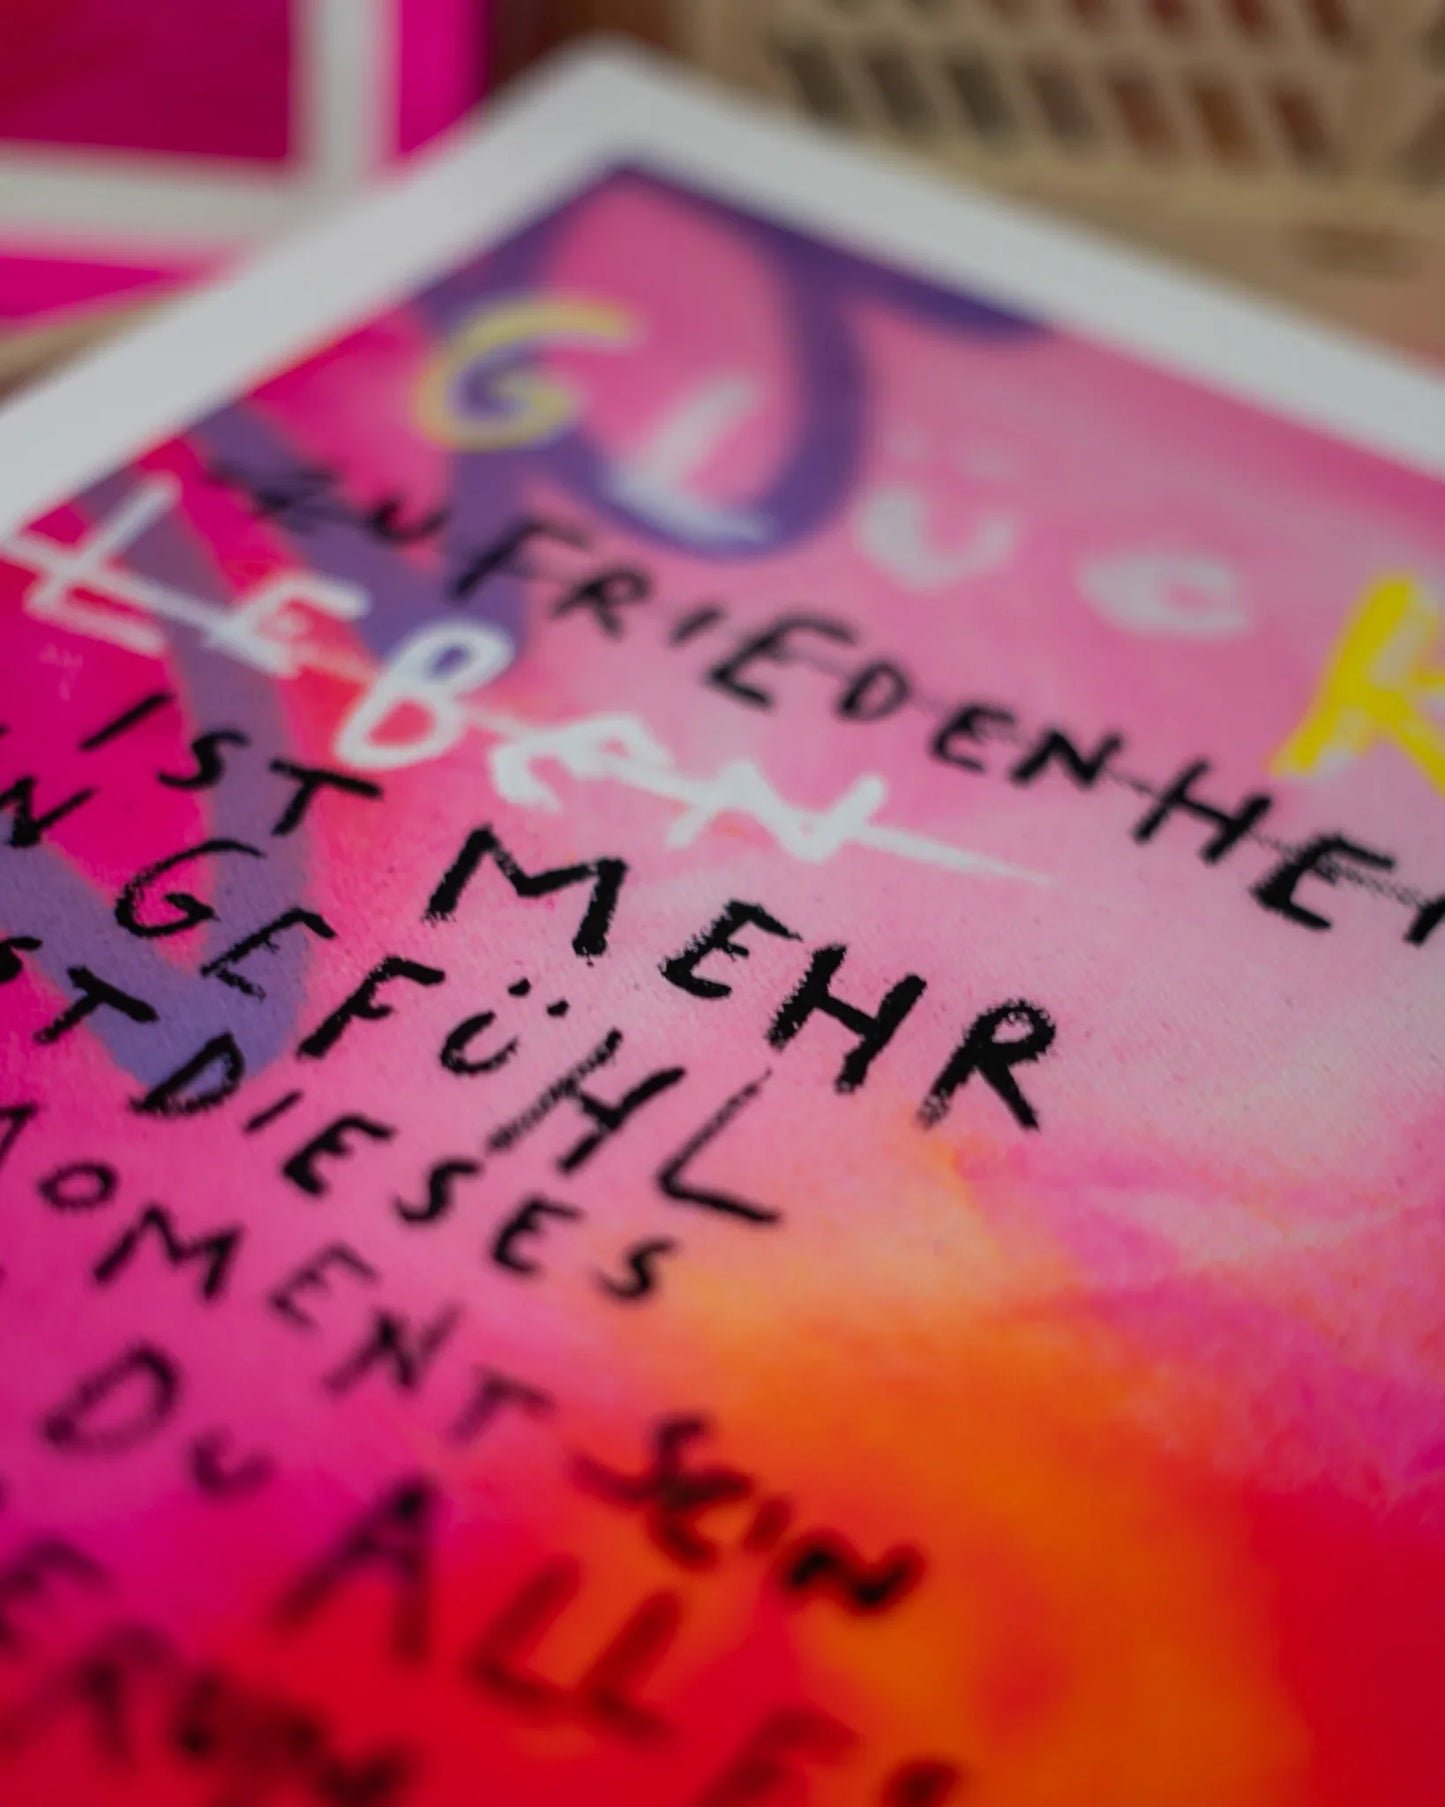 GLüCK
ZUFRIEDENHEI
LEBEN
IST MEHR
N GEFüHL
ST DIESES
MOMENT SEIN
DU ALLE